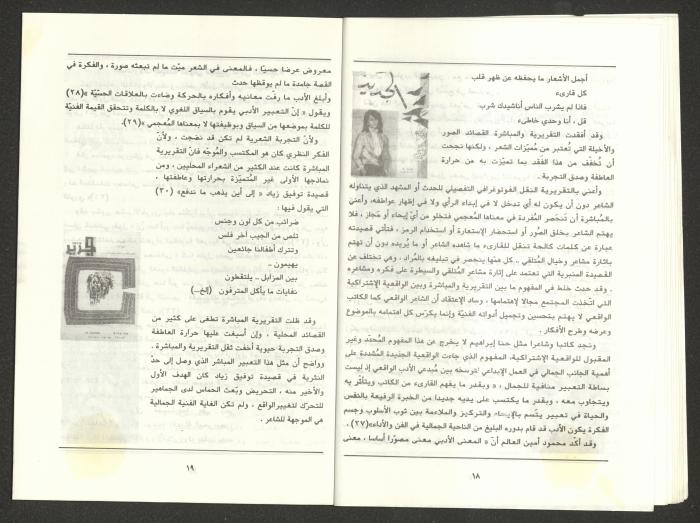 أجمل الأشعار ما يحفظه عن ظهر قلب
كل قارىء
فاذا لم يشرب الناس أناشيدك شرب
قل ، أنا وحدي خاطىء
وقد أفقدت التقريرية والمباشرة القصائد الصور
والأخيلة التي تُعتبر من مُميّزات الشعر ، ولكنها نجحت
أن تُخفّف من هذا الفقد بما تميّزت به من حرارة
العاطفة وصدق التجربة .
وأعني بالتقريرية النقل الفوتوغرافي التفصيلي للحدث أو المشهد الذي يتناوله
الشاعر دون أن يكون له أي تدخل لا في إبداء الرأي ولا في إظهار عواطفه، وأعني
بالمُباشرة أن تنحصر المُفردة في معناها المُعجمي فتخلو من أيّ إيحاء أو مَجاز ، فلا
يهتم الشاعر بخلق الصّور أو استحضار الإستعارة أو استخدام الرمز ، فتأتي قصيدته
عبارة عن كلمات كالحة تنقل للقارىء ما شاهده الشاعر أو ما يُريده دون أن تهتم
بإثارة مشاعر وخيال المُتلقي .. كل همّها ينحصر في تبليغه بالمُراد . وهي تختلف عن
القصيدة المنبرية التي تعتمد على إثارة مشاعر المتلقي والسيطرة على فكره ومشاعره
. وقد حدث خلط في المفهوم ما بين التقريرية والمباشرة وبين الواقعية الإشتراكية
التي اتّخذت المجتمع مجالا لاهتمامها ، وساد الإعتقاد أن الشاعر الواقعي كما الكاتب
الواقعي لا يهتم بتحسين وتجميل أدواته الفنيّة وإنما يكرّس كل اهتمامه بالموضوع
وعرضه وطرح الأفكار.
ونجد كاتبا وشاعرا مثل حنا إبراهيم لا يخرج عن هذا المفهوم المُحدّد وغير
المقبول للواقعية الإشتراكية، المفهوم الذي جاءت الواقعية الجديدة المُشددة على
أهمية الجانب الجمالي في العمل الإبداعي لترسخه بين مُبدعي الأدب الواقعي إذ ليست
بساطة التعبير منافية للجمال ، « وبقدر ما يفهم القارىء من الكاتب ويتأثّر به
ويتجاوب معه ، وبقدر ما يكتسب على يديه جديدا من الخبرة الرفيعة بالنفس
والحياة في تعبير يتّسم بالإيحاء والتركيز والملاءمة بين ثوب الأسلوب وجسم
الفكرة يكون الأدب قد قام بدوره البليغ من الناحية الجمالية في الفن والأداء»(٢٧) .
وقد أكّد محمود أمين العالم أنّ « المعنى الأدبي معنى مصوّرا أساسا ، معنى
١٨
معروض عرضا حسيّا ، فالمعنى في الشعر ميّت ما لم تبعثه صورة ، والفكرة في
القصة جامدة ما لم يوقظها حدث
وأبلغ الأدب ما رفّت معانيه وأفكاره بالحركة وضاءت بالعلاقات الحسيّة »(٢٨)
ويقول « إنّ التعبير الأدبي يقوم بالسياق اللغوي لا بالكلمة وتتحقق القيمة الفنيّة
للكلمة بموضعها من السياق وبوظيفتها لا بمعناها المُعجمي »(٢٩).
ولأنّ التجربة الشعرية لم تكن قد نضجت ، ولأنّ
الفكر النظري كان هو المكتسب والمُوجّه فانّ التقريرية
المباشرة كانت عند الكثير من الشعراء المحليين ، ومن
نماذجها الأولى غير المُتميّزة بحرارتها وعاطفتها ،
قصيدة توفيق زياد « إلى أين يذهب ما ندفع» (٣٠)
التي يقول فيها :
ضرائب من كل لون وجنس
تلص من الجيب آخر فلس
وتترك أطفالنا جائعين
يهيمون ..
بين المزابل .. يلتقطون
نفايات ما يأكل المترفون (إلخ...)
وقد ظلت التقريرية المباشرة تطغى على كثير من
القصائد المحلية ، وإن أسبغت عليها حرارة العاطفة
وصدق التجربة حيوية أخفت ثقل التقريرية والمباشرة .
وواضح أن مثل هذا التعبير المباشر الذي وصل إلى حدّ
النثرية في قصيدة توفيق زياد كان الهدف الأول
والأخير منه ، التحريض وبَعث الحماس لدى الجماهير
للتحرك لتغيير الواقع ، ولم تكن الغاية الفنية الجمالية
هي الموجهة للشاعر .
١٩
الجديد